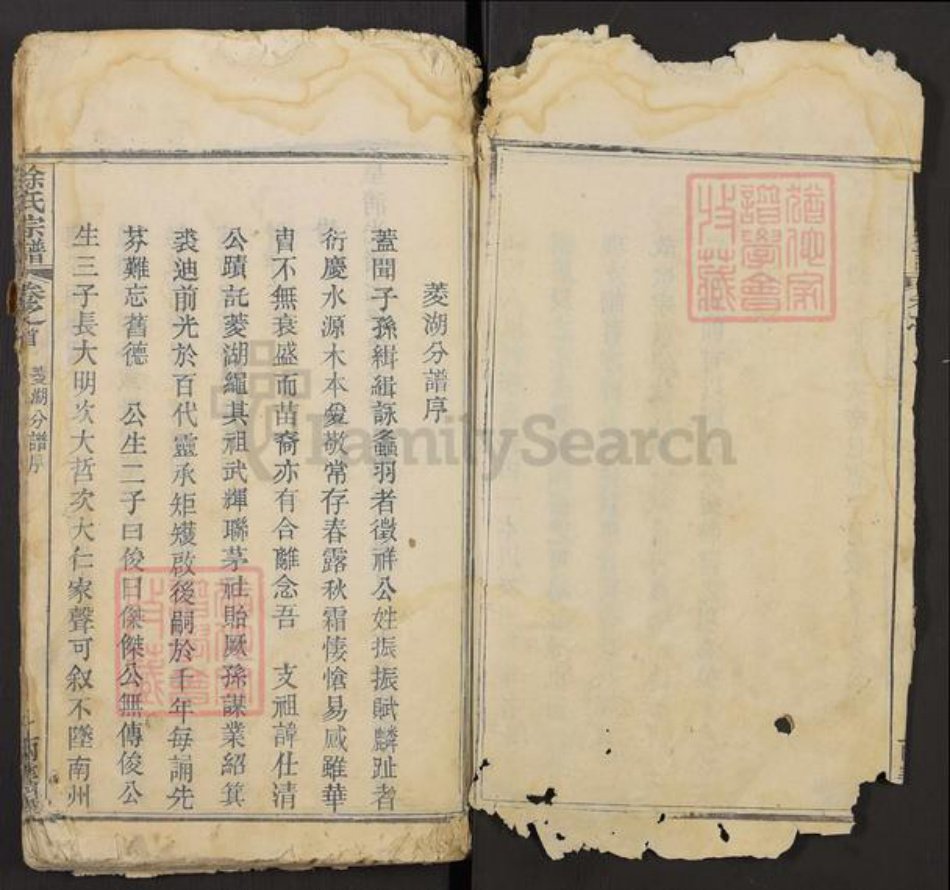 菱湖分譜序
蓋聞子孫緝緝詠螽羽者徵祥公姓振振賦麟趾者
衍慶水源木本愛敬常存春露秋霜悽愴易感雖華
胄不無衰盛而苗裔亦有合離念吾 支祖諱仕清
公蹟託菱湖繩其祖武輝聯茅社貽厥孫謀業紹箕
裘迪前光於百代靈承矩矱啟後嗣於千年每誦先
芬難忘舊德 公生二子曰俊曰傑傑公無傳俊公
生三子長大明次大哲次大仁家聲可叙不墜南州
徐氏宗譜 卷之首 菱湖分譜序
FamilySearch